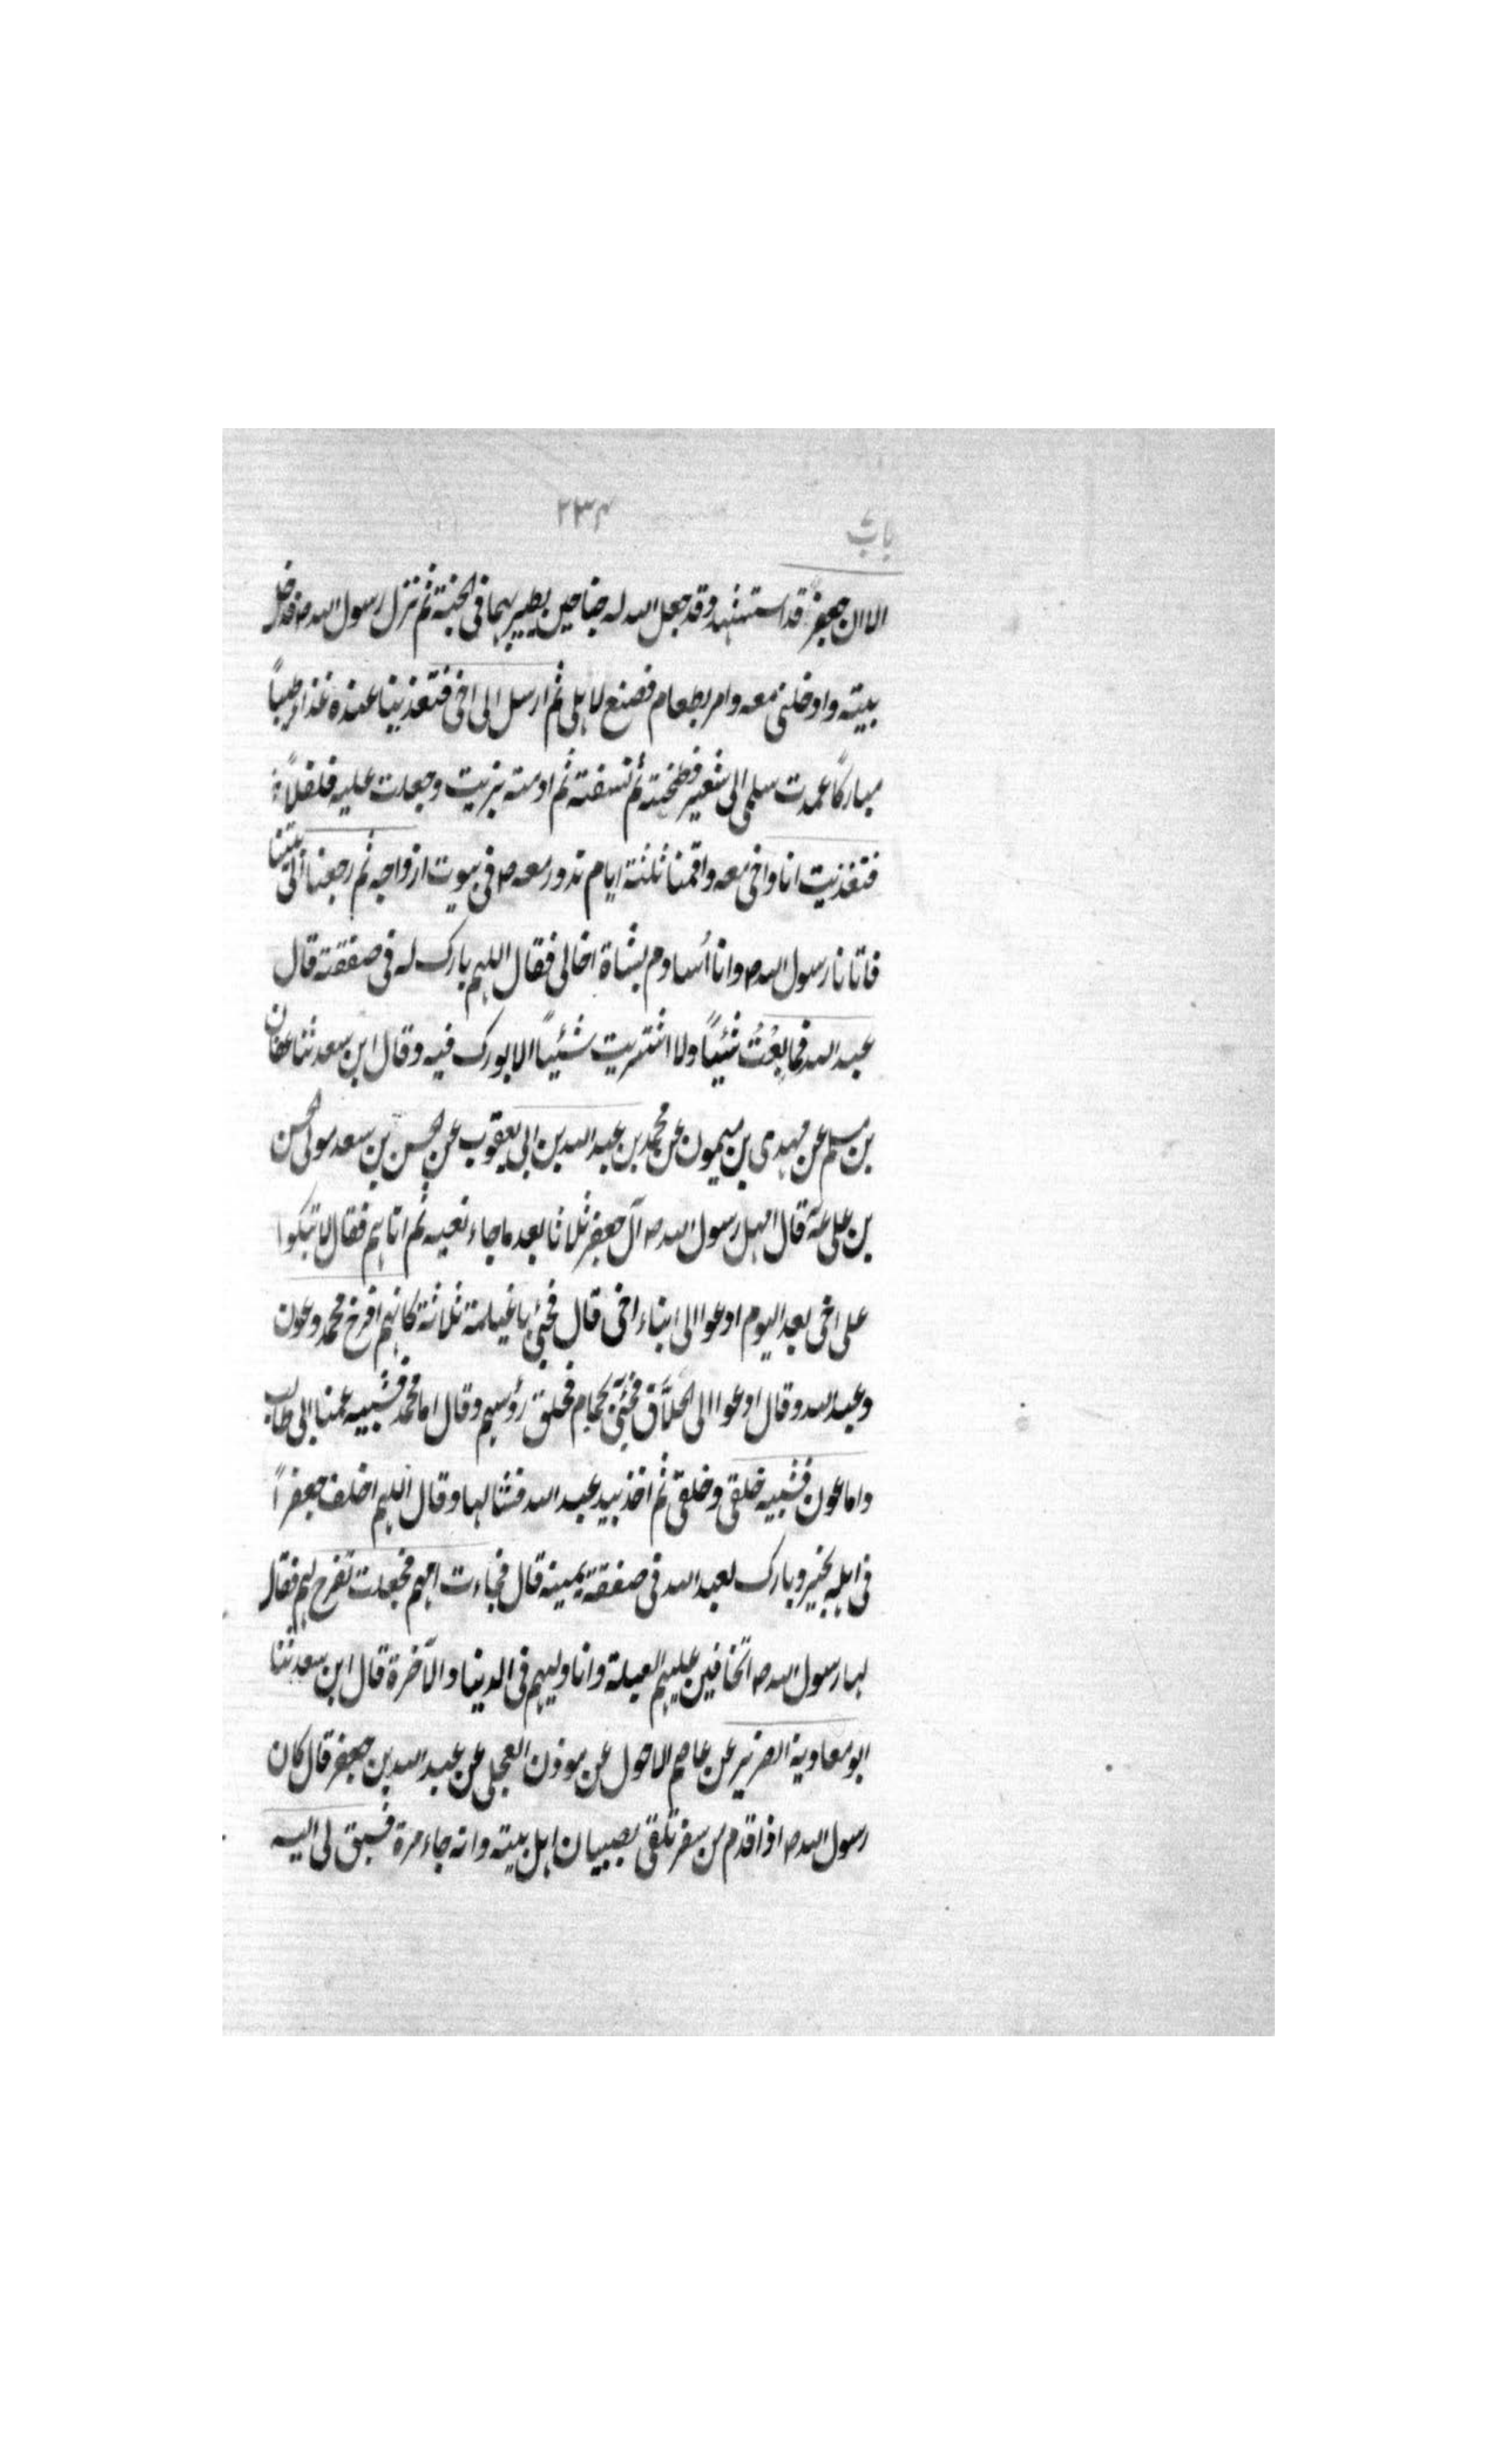 باب
٢٣٤
الا ان جعفرً قد استشهد وقد جعل الله له جناحين يطير بهما فى الجنة ثم نزل رسول الله ص فدخل
بيته وادخلنى معه وامر بطعام فصنع لاهلى ثم ارسل الى اخى فتغذينا عنده غذاء طيباً
مباركاً عمدت سلمى الى شعير فطحنته ثم نسفته ثم ادمته بزيت وجعلت عليه فلفلاً
فتغذيت انا واخى معه واقمنا ثلثة ايام ندور معه ص فى بيوت ازواجه ثم رجعنا الى بيتنا
فاتانا رسول الله ص وانا أساوم بشاة اخالى فقال اللهم بارك له فى صفقته قال
عبد الله فما بِعْتُ شئياً ولا اشتريت شئياً الا بورك فيه وقال ابن سعد ثنا عفان
بن مسلم عن مهدى بن ميمون عن محمد بن عبد الله بن ابى يعقوب عن الحسن بن سعد مولى الحسن
بن على عنه قال امهل رسول الله ص آل جعفر ثلاثا بعد ما جاء نعيه ثم اتاهم فقال لا تبكوا
على اخى بعد اليوم ادعوا الى ابناء اخى قال فجئ باغيلمة ثلاثة كانهم افرخ محمد وعون
وعبد الله وقال ادعوا الى الحلاق فجئى بحجام فحلق رؤسهم وقال اما محمد فشبيه عمنا ابى طالب
واما عون فشبيه خلقى وخلقى ثم اخذ بيد عبد الله فشالها وقال اللهم اخلف جعفراً
فى اهله بخير وبارك لعبد الله فى صفقة يمينه قال فجاءت امهم فجعلت تفرح لهم فقال
لها رسول الله ص اتخافين عليهم العيلة وانا وليهم فى الدنيا والآخرة قال ابن سعد ثنا
ابو معاوية الضرير عن عاصم الاحول عن مورق العجلى عن عبد الله بن جعفر قال كان
رسول الله ص اذا قدم من سفر تلقى بصبيان اهل بيته وانه جاء مرة فسبق لى اليه